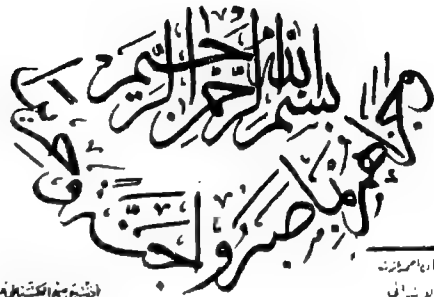 بسم الله الرحمن الرحيم
وجزاهم بما صبروا جنة وحريرا